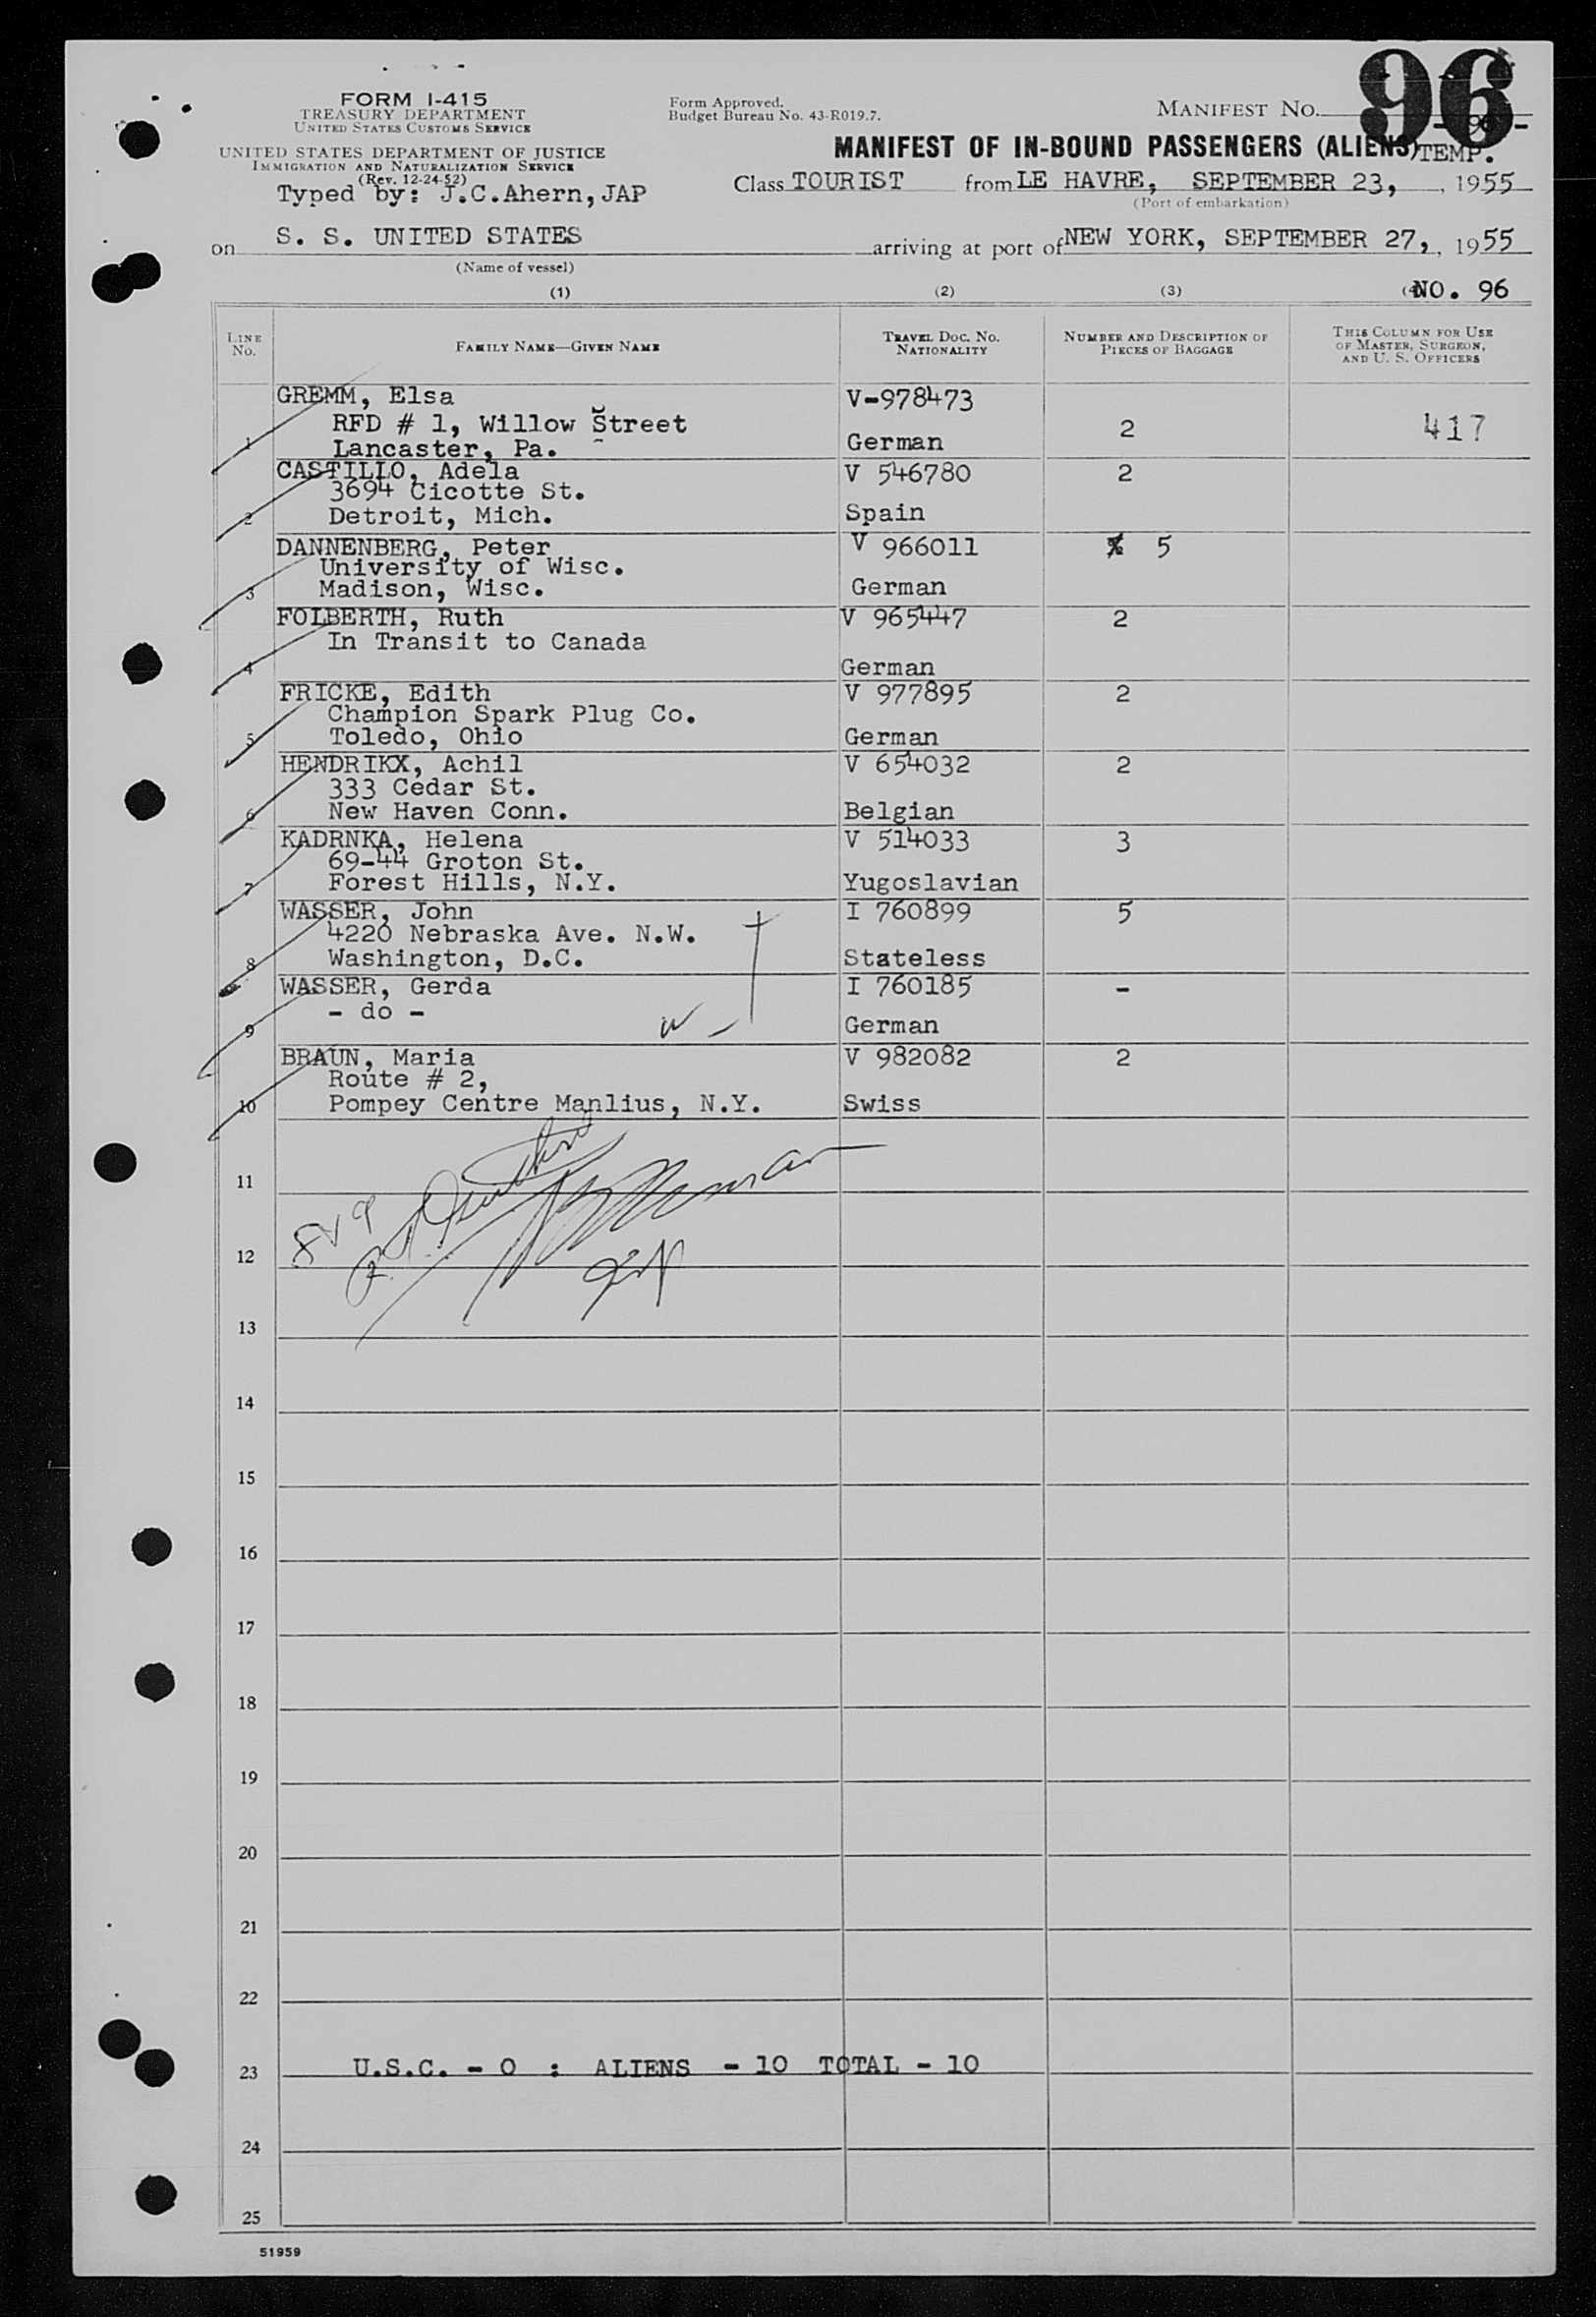 96
FORM I-415
TREASURY DEPARTMENT
UNITED STATES CUSTOMS SERVICE
UNITED STATES DEPARTMENT OF JUSTICE
IMMIGRATION AND NATURALIZATION SERVICE
(Rev. 12-24-52)
Typed by: J.C.Ahern, JAP
Form Approved.
Budget Bureau No. 43-R019.7.
MANIFEST NO.
MANIFEST OF IN-BOUND PASSENGERS (ALIENS) TEMP.
Class TOURIST from LE HAVRE, SEPTEMBER 23, , 1955
(Port of embarkation)
on S. S. UNITED STATES arriving at port of NEW YORK, SEPTEMBER 27, , 1955
(Name of vessel)
(1) (2) (3) (4) NO. 96
LINE No. FAMILY NAME—GIVEN NAME TRAVEL DOC. NO. NATIONALITY NUMBER AND DESCRIPTION OF PIECES OF BAGGAGE THIS COLUMN FOR USE OF MASTER, SURGEON, AND U. S. OFFICERS
GREMM, Elsa V-978473
RFD # 1, Willow Street 2 417
1 Lancaster, Pa. German
CASTILLO, Adela V 546780 2
3694 Cicotte St.
2 Detroit, Mich. Spain
DANNENBERG, Peter V 966011 5
University of Wisc.
3 Madison, Wisc. German
FOLBERTH, Ruth V 965447 2
In Transit to Canada
4 German
FRICKE, Edith V 977895 2
Champion Spark Plug Co.
5 Toledo, Ohio German
HENDRIKX, Achil V 654032 2
333 Cedar St.
6 New Haven Conn. Belgian
KADRNKA, Helena V 514033 3
69-44 Groton St.
7 Forest Hills, N.Y. Yugoslavian
WASSER, John I 760899 5
4220 Nebraska Ave. N.W.
8 Washington, D.C. Stateless
WASSER, Gerda I 760185 -
- do -
9 German
BRAUN, Maria V 982082 2
Route # 2,
10 Pompey Centre Manlius, N.Y. Swiss
11
12
13
14
15
16
17
18
19
20
21
22
23 U.S.C. - 0 : ALIENS - 10 TOTAL - 10
24
25
51959